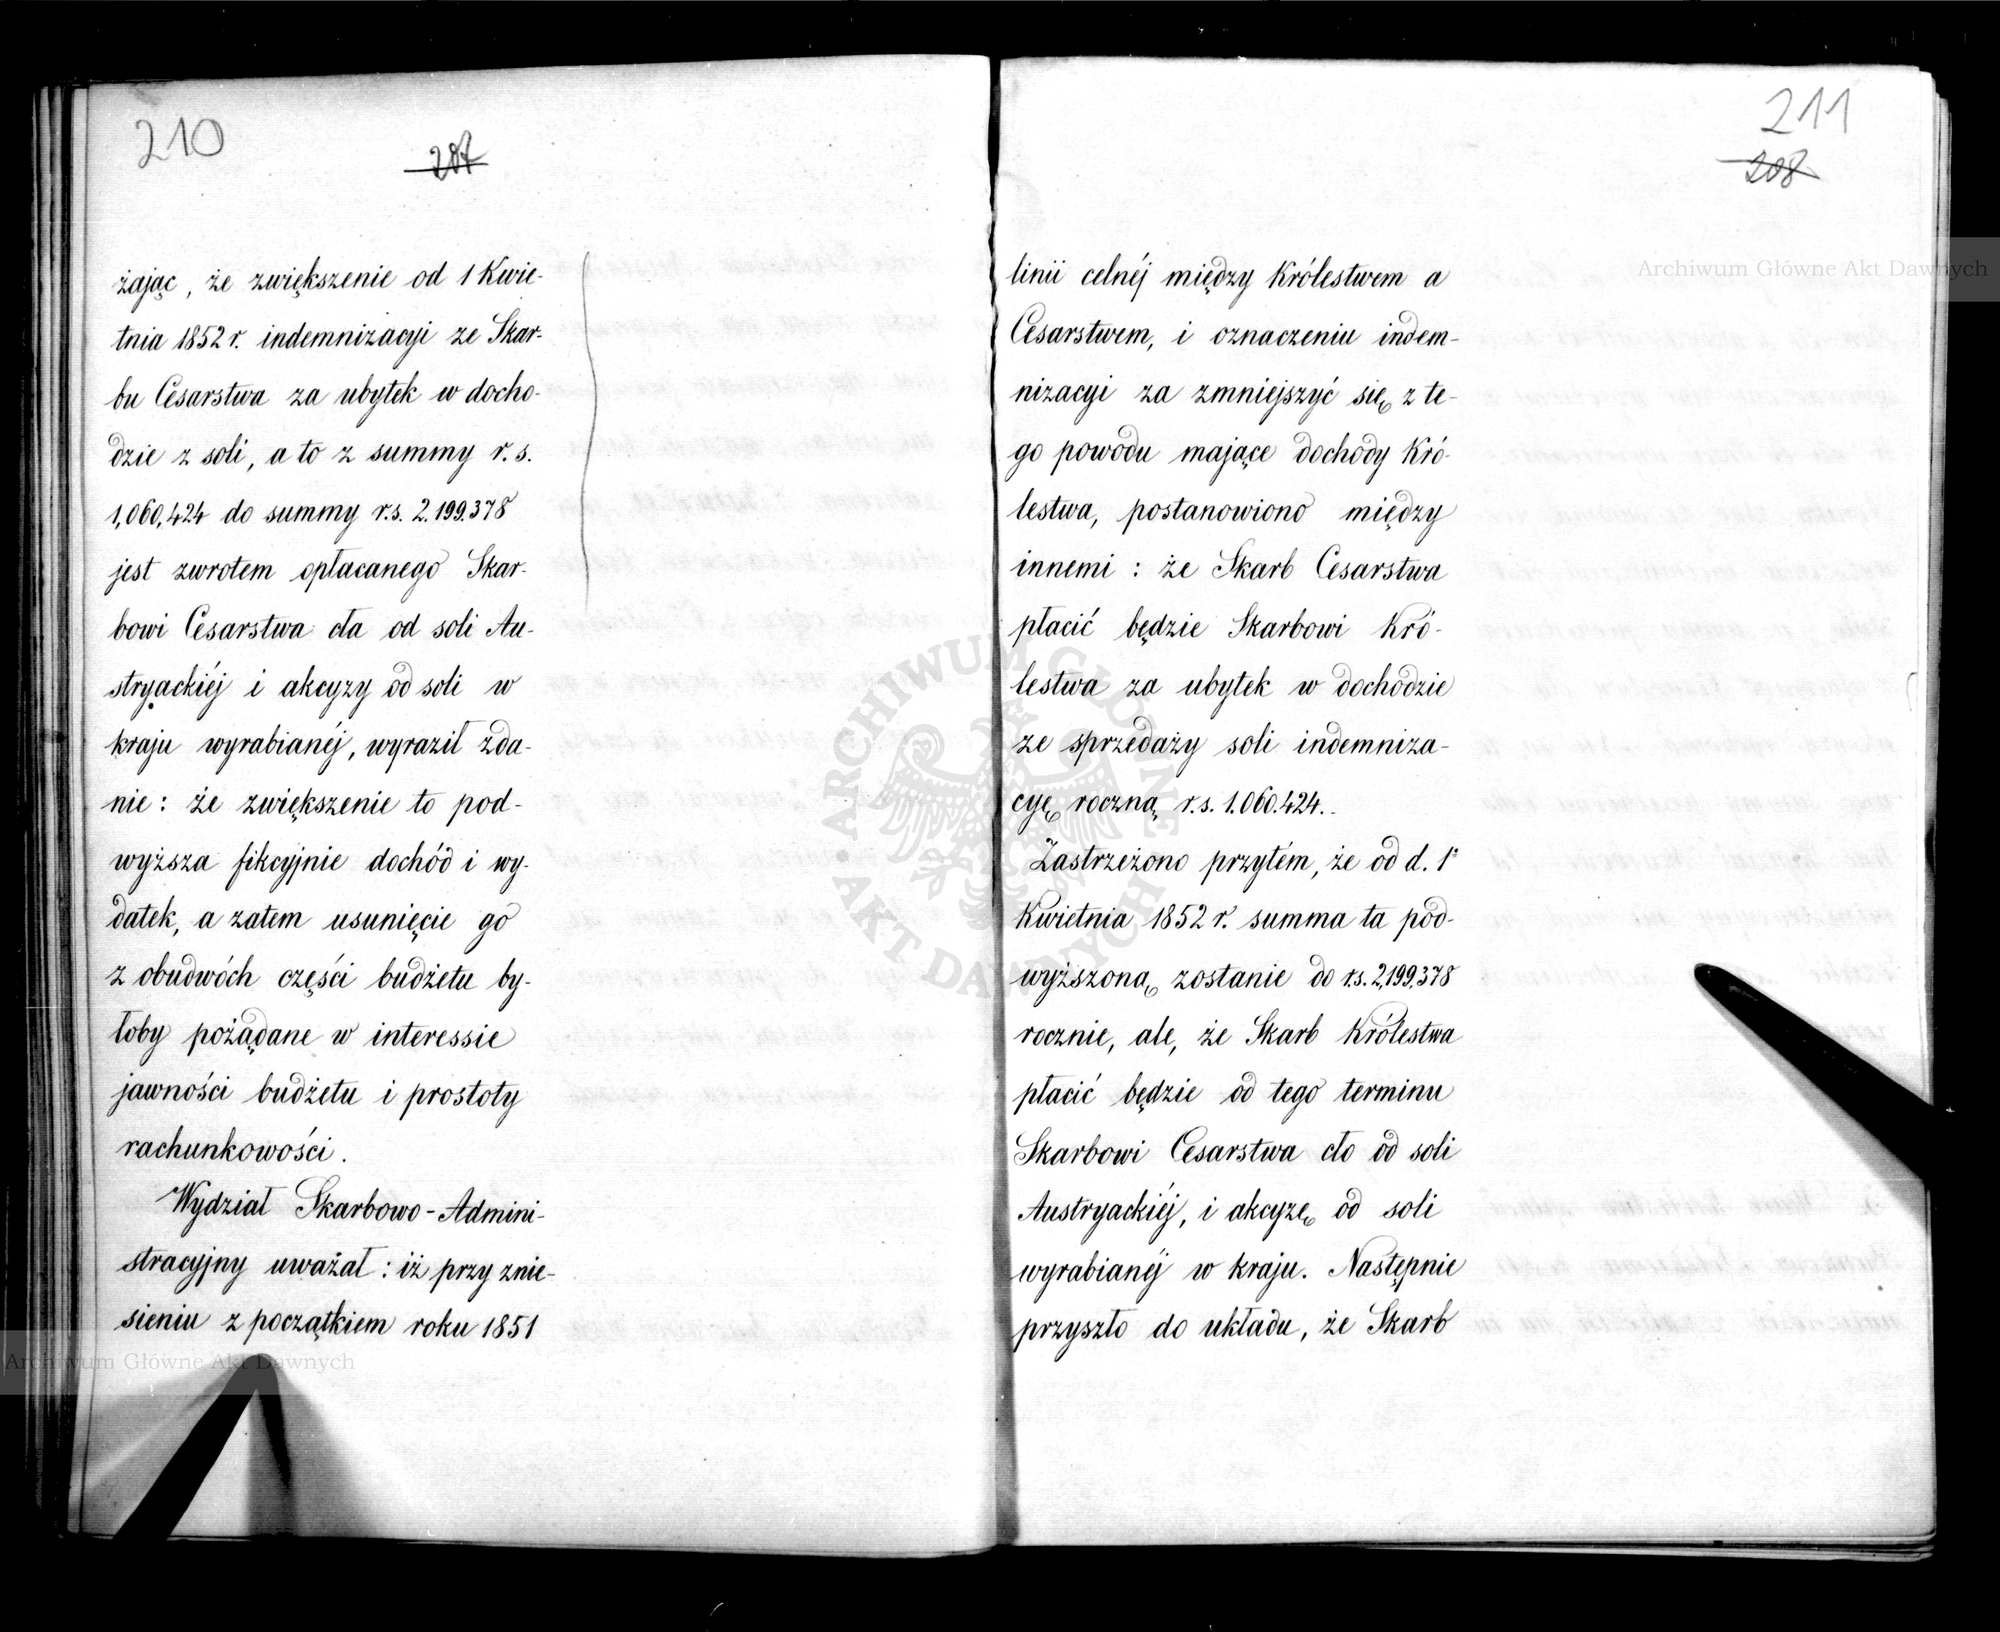 210
207
żając, że zwiększenie od 1 Kwie-
tnia 1852 r. indemnizacyi ze Skar-
bu Cesarstwa za ubytek w docho-
dzie z soli, a to z summy r. s.
1,060,424 do summy r.s. 2.199.378
jest zwrotem opłacanego Skar-
bowi Cesarstwa cła od soli Au-
stryackiéj i akcyzy od soli w
kraju wyrabianéj, wyraził zda-
nie: że zwiększenie to pod-
wyższa fikcyjnie dochód i wy-
datek, a zatem usunięcie go
z obudwóch części budżetu by-
łoby pożądane w interessie
jawności budżetu i prostoty
rachunkowości.
Wydział Skarbowo-Admini-
stracyjny uważał: iż przy znie-
sieniu z początkiem roku 1851
211
208
linii celnéj między Królestwem a
Cesarstwem, i oznaczeniu indem-
nizacyi za zmniejszyć się z te-
go powodu mające dochody Kró-
lestwa, postanowiono między
innemi: że Skarb Cesarstwa
płacić będzie Skarbowi Kró-
lestwa za ubytek w dochodzie
ze sprzedaży soli indemniza-
cyę roczną r.s. 1.060.424.
Zastrzeżono przytém, że od d. 1
Kwietnia 1852 r. summa ta pod-
wyższoną zostanie do r.s. 2,199,378
rocznie, ale, że Skarb Królestwa
płacić będzie od tego terminu
Skarbowi Cesarstwa cło od soli
Austryackiéj, i akcyzę od soli
wyrabianéj w kraju. Następnie
przyszło do układu, że Skarb
Archiwum Główne Akt Dawnych
Archiwum Główne Akt Dawnych
ARCHIWUM GŁÓWNE AKT DAWNYCH